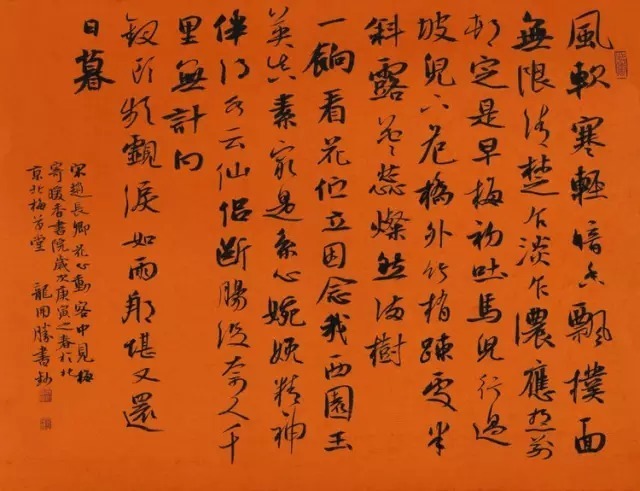 風軟寒輕暗香飄撲面
無限清楚乍淡乍濃應想前
村定是早梅初吐馬兒行過
坡兒下危橋外竹梢疎處半
斜露花蕊燦然滿樹
一餉看花佇立因念我西園玉
英真素最是系心婉娩精神
伴得水云仙侶斷腸沒奈人千
里無計向
釵頭頻覷淚如雨那堪又還
日暮
宋趙長卿花心動客中見梅
寄暖香書院歲次庚寅之春於北
京北梅堂 龍開勝書